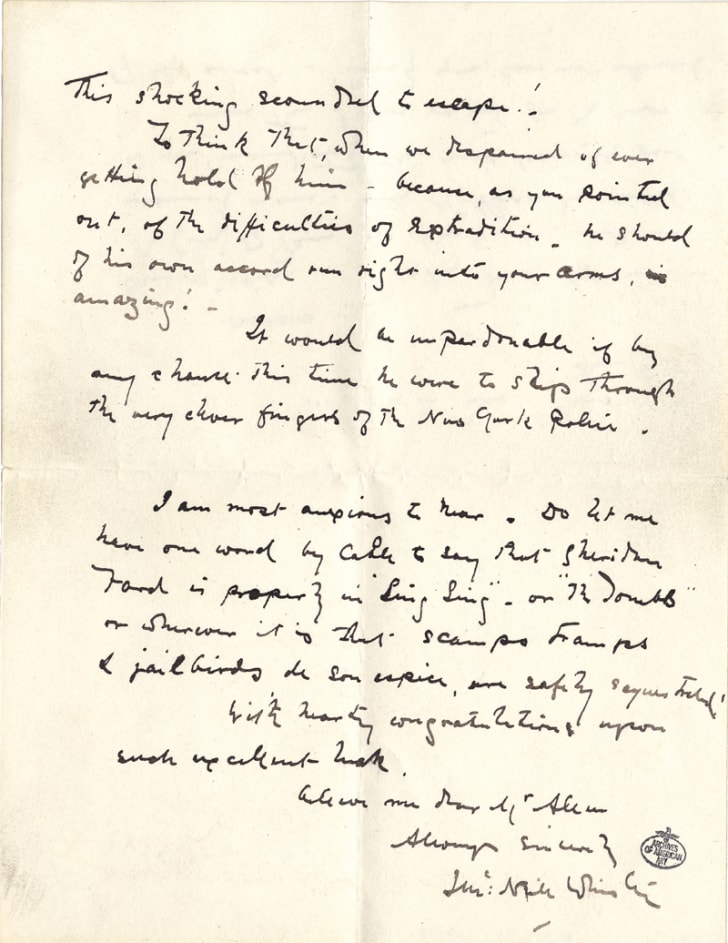 This shocking scoundrel to escape!
To think that, when we despaired of ever
getting hold of him - because, as you pointed
out, of the difficulties of extradition - he should
of his own accord run right into your arms, is
amazing! -
It would be unpardonable if by
any chance this time he were to slip through
the very clever fingers of the New York Police.
I am most anxious to hear. Do let me
have one word by cable to say that Sheridan
Ford is properly in "Sing Sing" - or "The Tombs"
or wherever it is that scamps tramps
& jailbirds de son espèce, are safely sequestered!
With hearty congratulations upon
such excellent luck
Believe me dear Mr Allen
Always sincerely
J. McNeill Whistler
ARCHIVES
OF AMERICAN
ART